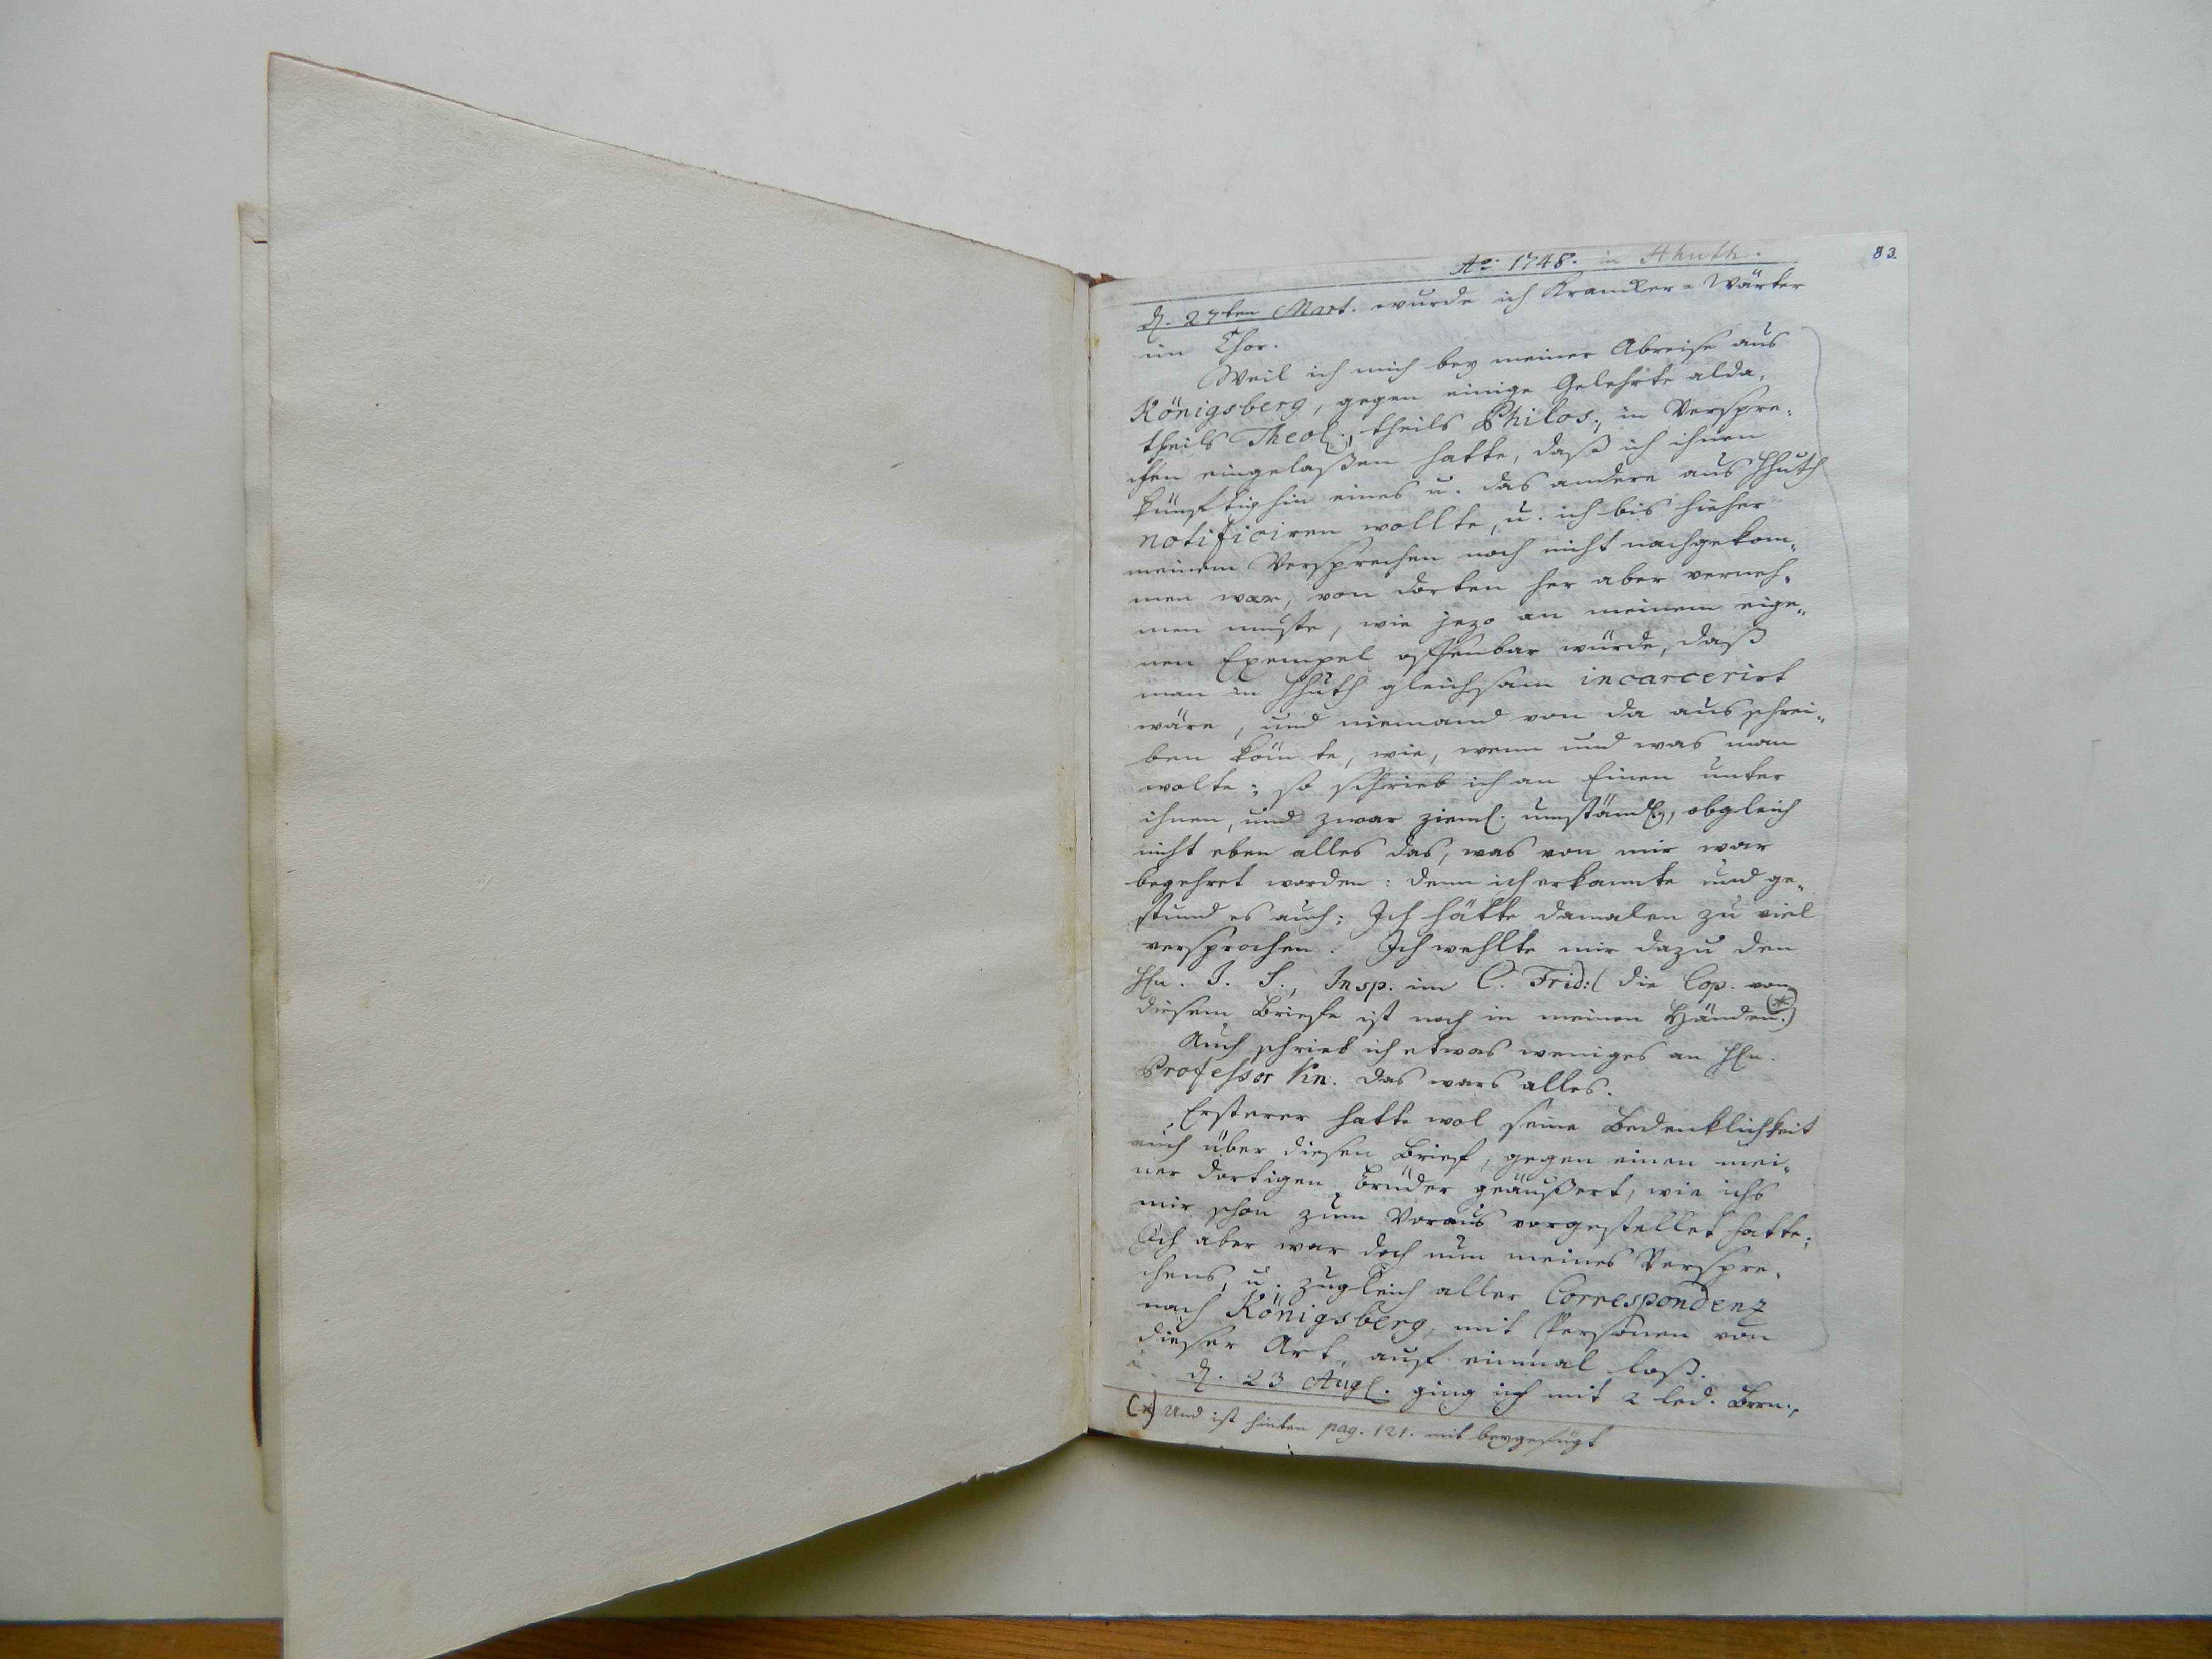 83.
Ao: 1748. in Hhuth.
d. 27ten Mart. wurde ich Krancker-Wärter
im Chor.
Weil ich mich bey meiner Abreise aus
Königsberg, gegen einige Gelehrte alda,
theils Theol., theils Philos., in Verspre-
chen eingelaßen hatte, daß ich ihnen
künftighin eines u. das andere aus Hhuth
notificiren wollte, u. ich bis hieher
meinem Versprechen noch nicht nachgekom-
men war, von dorten her aber verneh-
men muste, wie jezo an meinem eige-
nen Exempel offenbar würde, daß
man in Hhuth gleichsam incarcerirt
wäre, und niemand von da aus schrei-
ben könte, wie, wenn und was man
wolte; so schrieb ich an Einen unter
ihnen, und zwar zieml. umständl., obgleich
nicht eben alles das, was von mir war
begehret worden: denn ich erkannte und ge-
stund es auch: Ich hätte damalen zu viel
versprochen. Ich wehlte mir dazu den
Hln. J. S., Insp. im C. Frid: (die Cop. von
diesem Briefe ist noch in meinen Händen.) (*)
Auch schrieb ich etwas weniges an Hln.
Professor Kn. das wars alles.
Ersterer hatte wol seine Bedenklichkeit
auch über diesen Brief, gegen einen mei-
ner dortigen Brüder geäußert, wie ichs
mir schon zum Voraus vorgestellet hatte;
Ich aber war doch nun meines Verspre-
chens, u. zugleich aller Correspondenz
nach Königsberg, mit Personen von
dieser Art, auf einmal loß.
d. 23 Augl. ging ich mit 2 led. Brrn.,
(*) Und ist hinten pag. 121. mit beygefügt